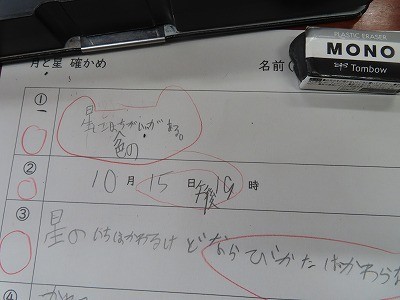 月と星 確かめ
名前
PLASTIC ERASER
MONO
Tombow
①
星には
ちがいがある。
色の
②
10月15日午後19時
③
星のいちはかわるけどならびかたはかわらな
④